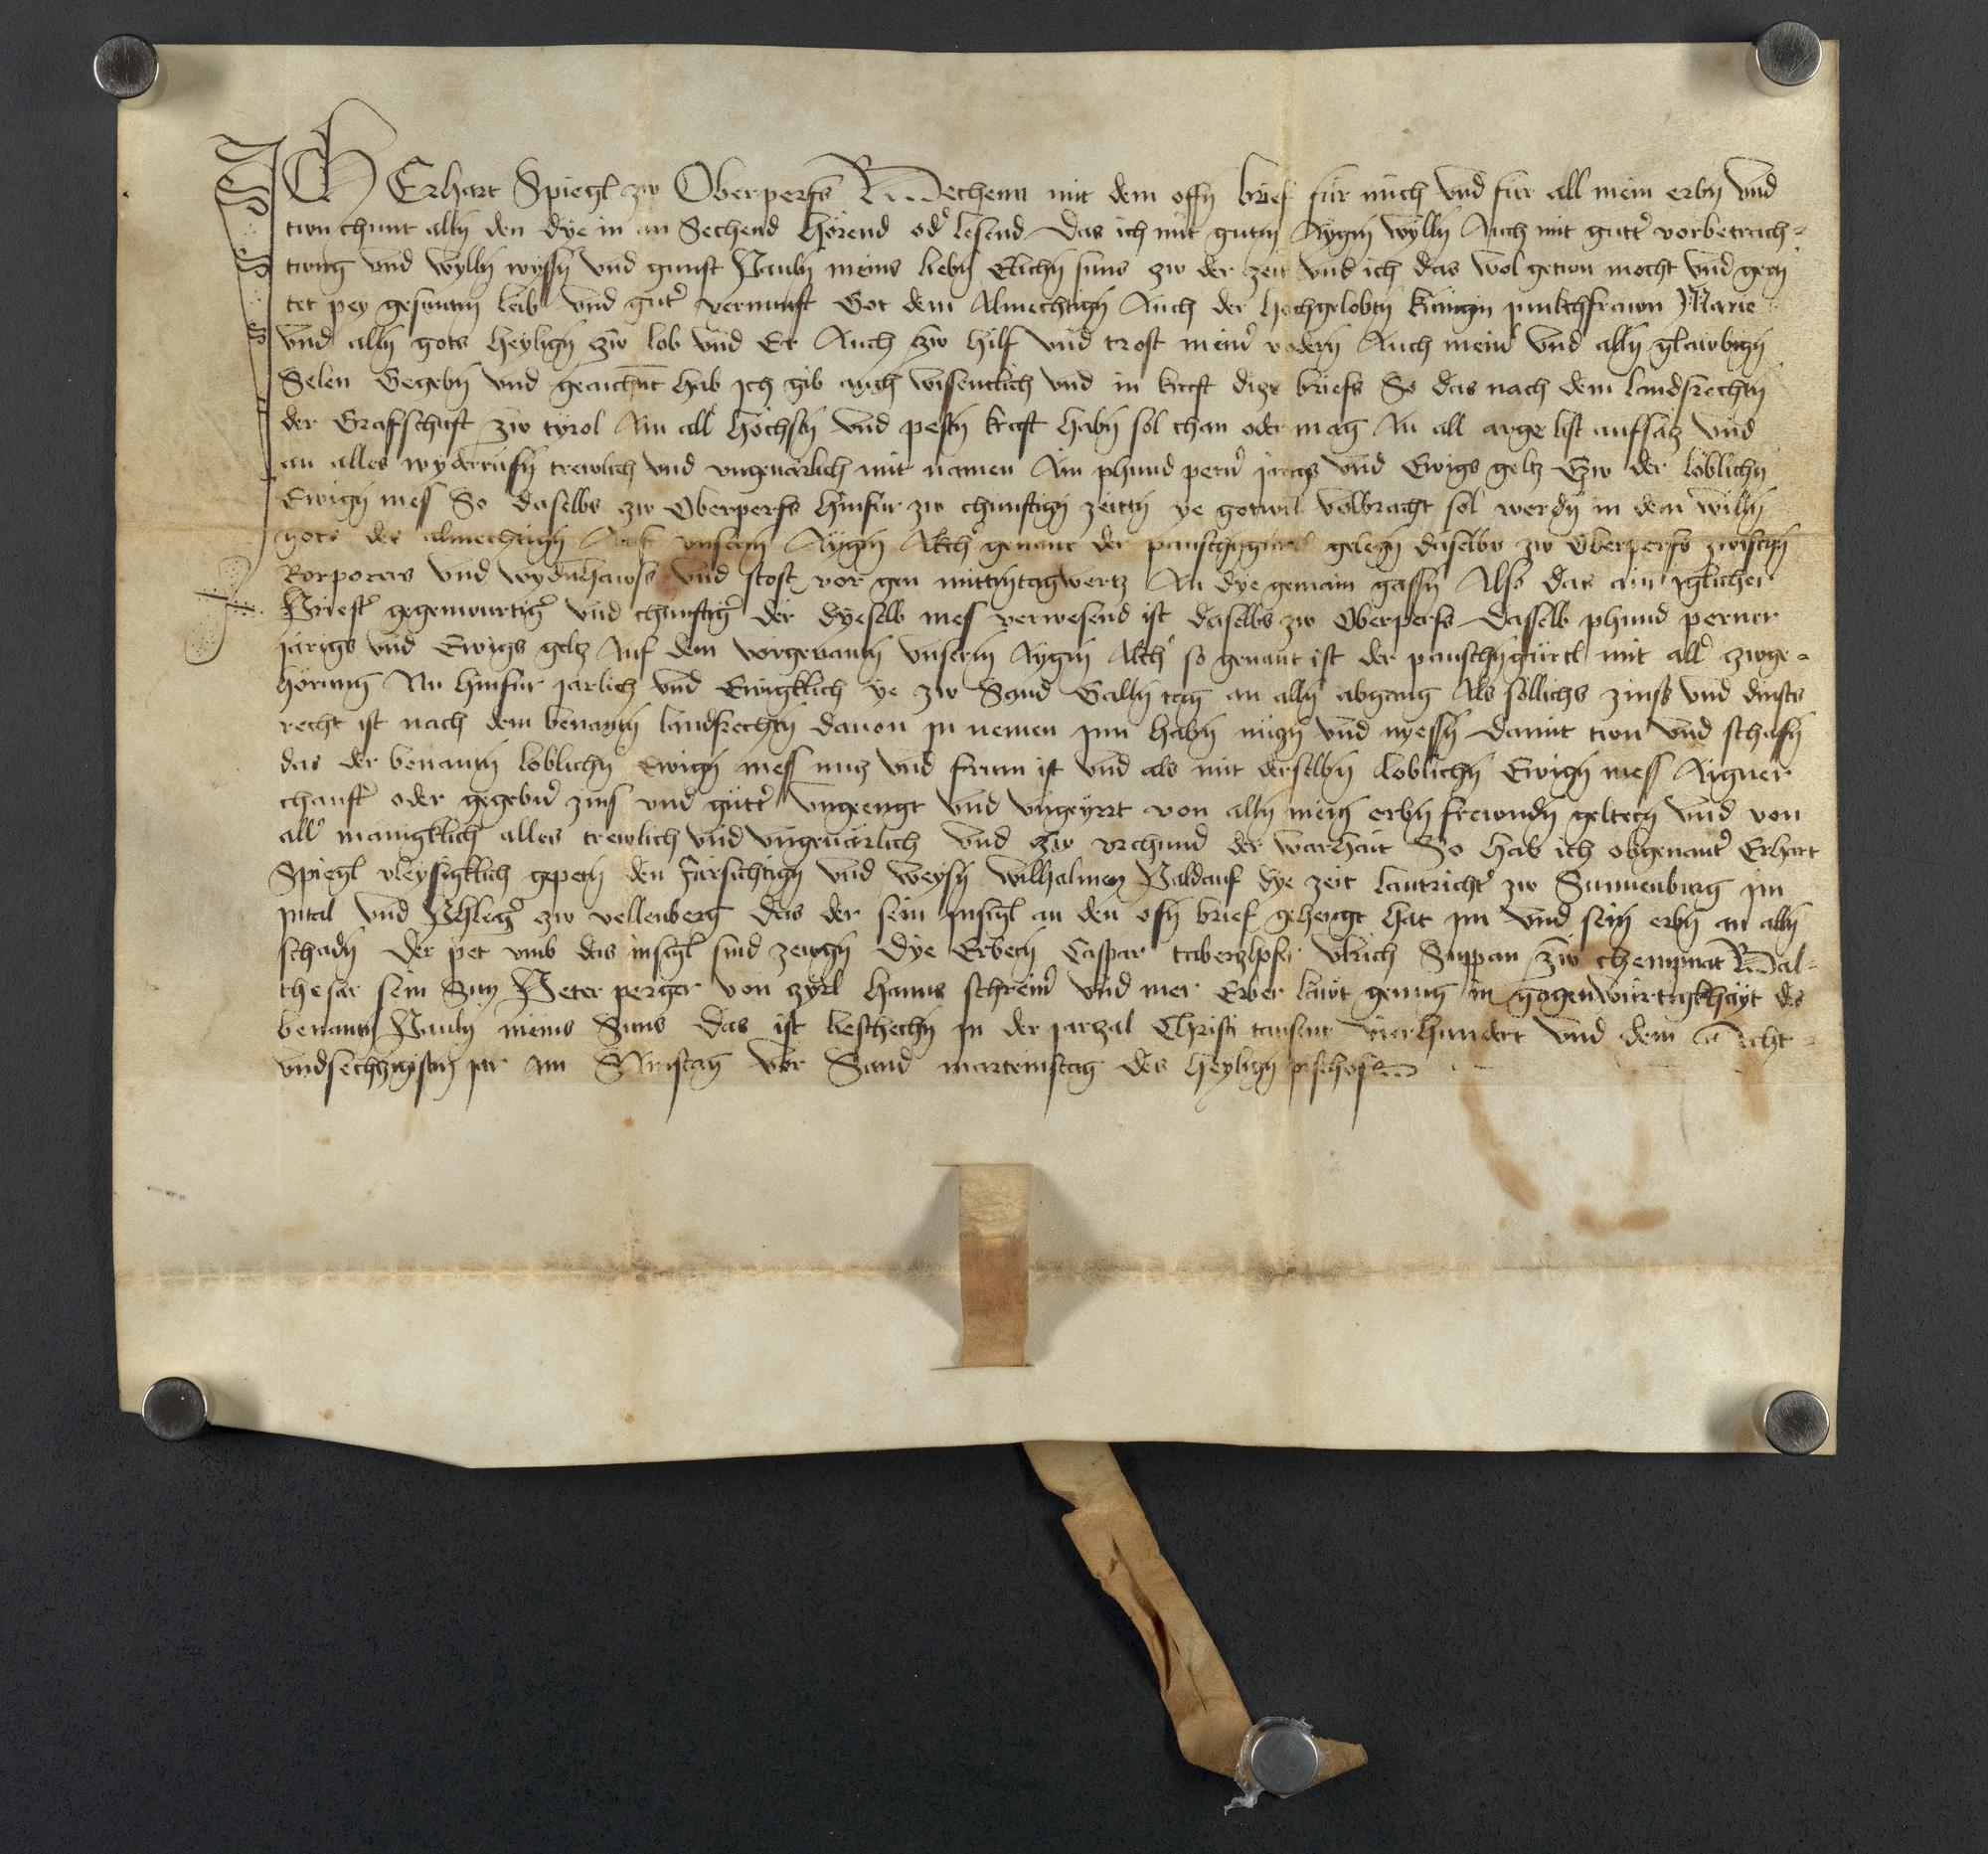 ICH Erhart Spiegl zw Oberperfs Wechenn mit dem offn brief für mich vnd für all mein erbn vnd
twn chunt alln den dye in an Sechend Hörend od' lesend Das ich mit gutm Aygn wylln Auch mit gutt' vorbetrach¬
twng vnd wylln wyssn vnd gunst Pauln meins liebn Elichn suns zw der zeit vnd ich das wol getwn mocht vnd gern
tet pey gesuntm leib vnd gut' vernunft Got dem Almechtign Auch der hochgelobtn kúnigin junkchfrawn Marie
vnd alln gots Heylign zw lob vnd Er Auch zw hilf vnd trost mein' vodern Auch mein' vnd alln glawbign
Selen Gegebn vnd geaichnt hab Ich gib auch wissentlich vnd in kraft diczs briefs So das nach dem landsrechtn
der Grafschaft zw tyrol Am all' höchstn vnd pestn kraft habn sol chan oder mag An all arge list aufsacz vnd
an alles wyderrufn trewlich vnd vngeuärlich mit namen Ain phund pern' jarigs vnd Ewigs geltz Czw der löblichn
Ewign mes So daselbs zw Oberperfs hinfur zw chunftign zeittn ye gotwil volbracht sol werdn in dem willn
gots des almechtign Auss vnserm Aygn Akch' genant der panschngürtl gelegn daselbs zw Oberperfs zwischn
korporers vnd wydnhawss vnd stost vor gen mittntagwertz An dye gemain gassn Also das ain yglicher
Priest' gegenwurtig' vnd chunftig' der dyeselb mes verwesend ist daselbs zw Oberperfs Dasselb phund perner
järigs vnd Ewigs geltz Auf dem vorgenantn vnserm Aygn Akch' so genant ist der panschngürtl mit all' zwge¬
hörung Nu hinfur järlich vnd Ewigklich ye zw Sand Galln tag an alln abgang Als söllichs zinss vnd dinsts
recht ist nach dem benantn landsrechtn dauon in nemen inn habn nuczn vnd nyessn Damit twn vnd schafn
das der benantn loblichn Ewign mess nucz vnd frum ist vnd als mit derselbn loblichn Ewign mess Aigner
chauft' oder gegebn' zins vnd gütt' vngeengt vnd vngeyrrt von alln mein erbn frewndn geltern vnd von
all' mänigklich alles trewlich vnd vngeuärlich vnd zw vrchund der warhait So hab ich obgenant' Erhart
Spiegl vleysigklich gepetn den fürsichtign vnd weysn wilhalmen Paldauf dye zeit lantricht' zw Sunnenburg jm
jntal vnd Phleg' zw vellenberg das der sein Insigl an den ofn brief gehengt hat jm vnd sein erbn an alln
schadn Der pet vmb das insigl sind zewgn Dye Erbern Caspar taberzlpf' vlrich Suppan zw chempnat Wal¬
thesar sein Sun Peter perger von zyrl hanns schrein' vnd mer Erber läwt genug in gegenwurtigkhayt des
benantn Pauln meins Suns Das ist beschechn in der jarzal Christi tausent vierhundert vnd dem Acht¬
vndsechczigistn jar am Eristag vor Sand marteinstag des heylign pischofs